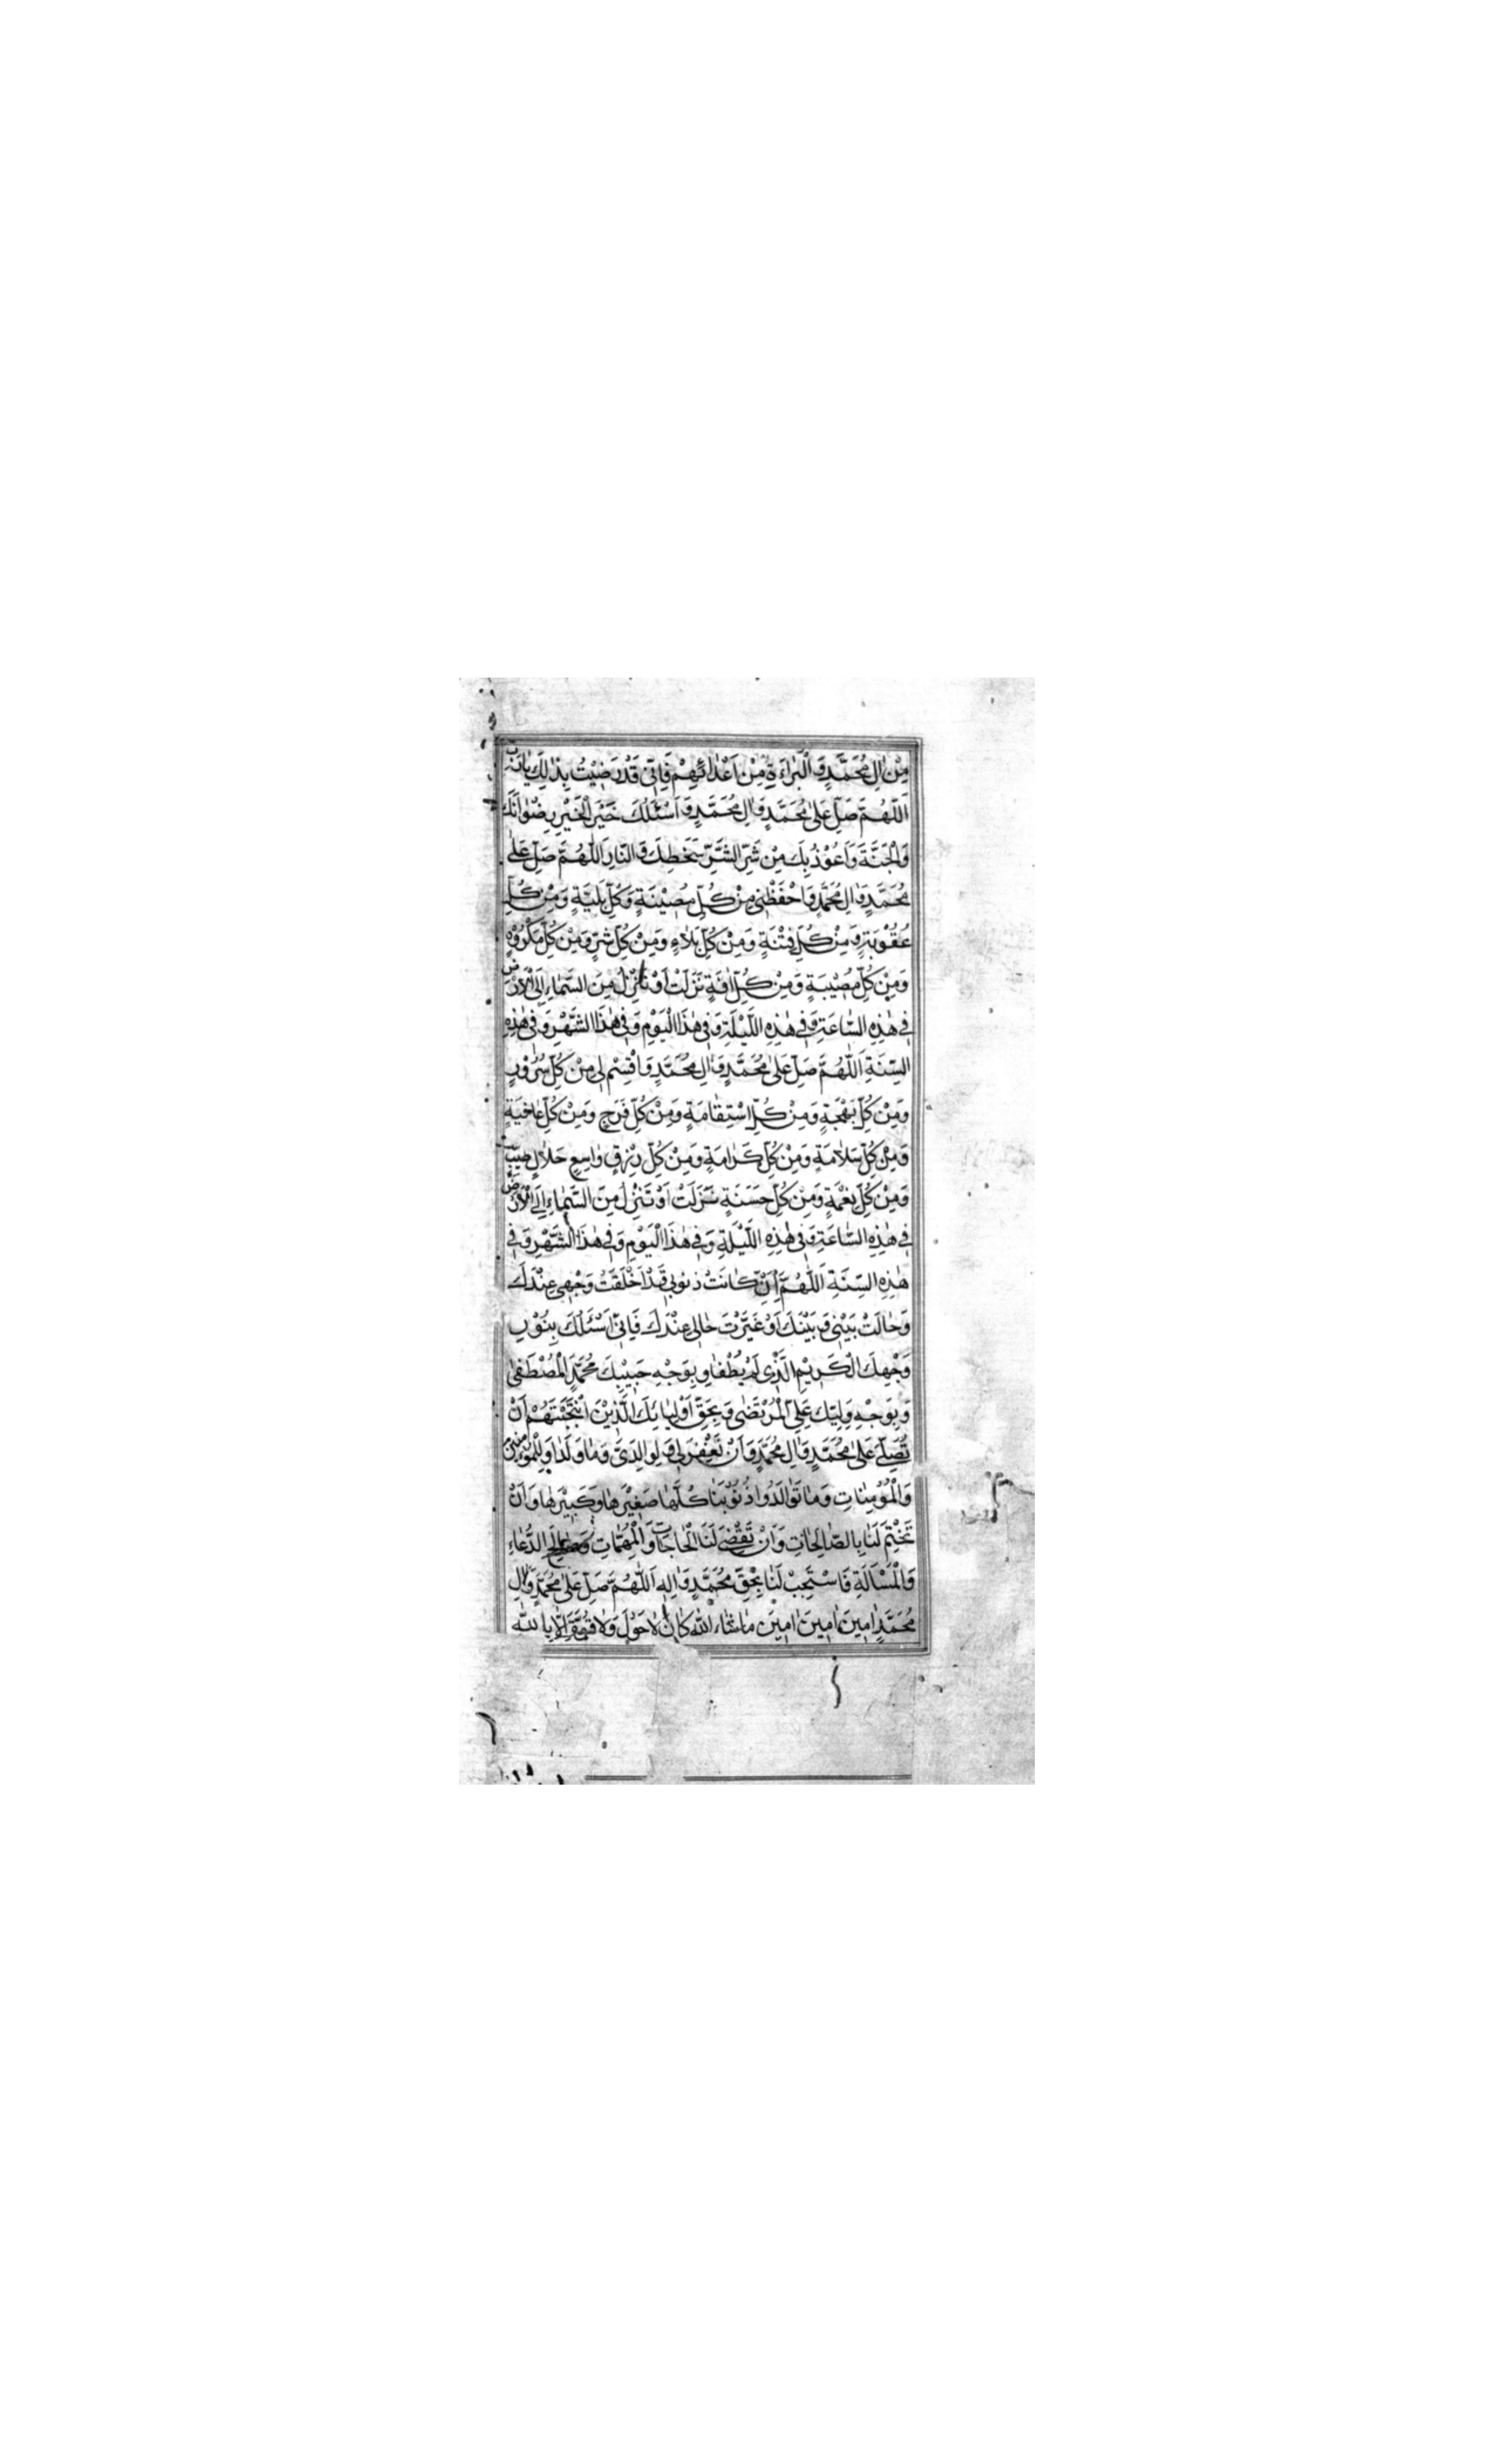 مِنْ اٰلِ مُحَمَّدٍ وَ الْبَرٰاءَةِ مِنْ اَعْدٰائِهِمْ فَاِنّٖى قَدْ رَضٖيتُ بِذٰلِكَ يٰا رَبِّ
اَللّٰهُمَّ صَلِّ عَلٰى مُحَمَّدٍ وَ اٰلِ مُحَمَّدٍ وَ اَسْئَلُكَ خَيْرَ الْخَيْرِ رِضْوٰانَكَ
وَ الْجَنَّةَ وَ اَعُوْذُ بِكَ مِنْ شَرِّ الشَّرِّ سَخَطِكَ وَ النّٰارِ اَللّٰهُمَّ صَلِّ عَلٰى
مُحَمَّدٍ وَ اٰلِ مُحَمَّدٍ وَ احْفَظْنٖى مِنْ كُلِّ مُصٖيْبَةٍ وَ كُلِّ بَلِيَّةٍ وَ مِنْ كُلِّ
عُقُوْبَةٍ وَ مِنْ كُلِّ فِتْنَةٍ وَ مِنْ كُلِّ بَلٰاءٍ وَ مِنْ كُلِّ شَرٍّ وَ مِنْ كُلِّ مَكْرُوْهٍ
وَ مِنْ كُلِّ مُصٖيْبَةٍ وَ مِنْ كُلِّ اٰفَةٍ نَزَلَتْ اَوْ تَنْزِلُ مِنَ السَّمٰاءِ اِلَى الْاَرْضِ
فٖى هٰذِهِ السّٰاعَةِ وَ فٖى هٰذِهِ اللَّيْلَةِ وَ فٖى هٰذَا الْيَوْمِ وَ فٖى هٰذَا الشَّهْرِ وَ فٖى هٰذِهِ
السَّنَةِ اَللّٰهُمَّ صَلِّ عَلٰى مُحَمَّدٍ وَ اٰلِ مُحَمَّدٍ وَ اقْسِمْ لٖى مِنْ كُلِّ سُرُوْرٍ
وَ مِنْ كُلِّ بَهْجَةٍ وَ مِنْ كُلِّ اسْتِقٰامَةٍ وَ مِنْ كُلِّ فَرَجٍ وَ مِنْ كُلِّ عٰافِيَةٍ
وَ مِنْ كُلِّ سَلٰامَةٍ وَ مِنْ كُلِّ كَرٰامَةٍ وَ مِنْ كُلِّ رِزْقٍ وٰاسِعٍ حَلٰالٍ طَيِّبٍ
وَ مِنْ كُلِّ نِعْمَةٍ وَ مِنْ كُلِّ حَسَنَةٍ نَزَلَتْ اَوْ تَنْزِلُ مِنَ السَّمٰاءِ اِلَى الْاَرْضِ
فٖى هٰذِهِ السّٰاعَةِ وَ فٖى هٰذِهِ اللَّيْلَةِ وَ فٖى هٰذَا الْيَوْمِ وَ فٖى هٰذَا الشَّهْرِ وَ فٖى
هٰذِهِ السَّنَةِ اَللّٰهُمَّ اِنْ كٰانَتْ ذُنُوبٖى قَدْ اَخْلَقَتْ وَجْهٖى عِنْدَكَ
وَ حٰالَتْ بَيْنٖى وَ بَيْنَكَ اَوْ غَيَّرَتْ حٰالٖى عِنْدَكَ فَاِنّٖى اَسْئَلُكَ بِنُوْرِ
وَجْهِكَ الْكَرٖيْمِ الَّذٖى لَمْ يُطْفٰا وَ بِوَجْهِ حَبٖيْبِكَ مُحَمَّدٍ الْمُصْطَفٰى
وَ بِوَجْهِ وَلِيِّكَ عَلِىٍّ الْمُرْتَضٰى وَ بِحَقِّ اَوْلِيٰائِكَ الَّذٖيْنَ انْتَجَبْتَهُمْ اَنْ
تُصَلِّىَ عَلٰى مُحَمَّدٍ وَ اٰلِ مُحَمَّدٍ وَ اَنْ تَغْفِرَ لٖى وَ لِوٰالِدَىَّ وَ مٰا وَلَدٰا وَ لِلْمُؤْمِنٖيْنَ
وَ الْمُؤْمِنٰاتِ وَ مٰا تَوٰالَدُوْا ذُنُوْبَنٰا كُلَّهٰا صَغٖيْرَهٰا وَ كَبٖيْرَهٰا وَ اَنْ
تَخْتِمَ لَنٰا بِالصّٰالِحٰاتِ وَ اَنْ تَقْضِىَ لَنَا الْحٰاجٰاتِ وَ الْمُهِمّٰاتِ وَ صٰالِحَ الدُّعٰاءِ
وَ الْمَسْاَلَةِ فَاسْتَجِبْ لَنٰا بِحَقِّ مُحَمَّدٍ وَ اٰلِهِ اَللّٰهُمَّ صَلِّ عَلٰى مُحَمَّدٍ وَ اٰلِ
مُحَمَّدٍ اٰمٖينَ اٰمٖينَ اٰمٖيْنَ مٰا شٰاءَ اللّٰهُ كٰانَ لٰا حَوْلَ وَ لٰا قُوَّةَ اِلّٰا بِاللّٰهِ